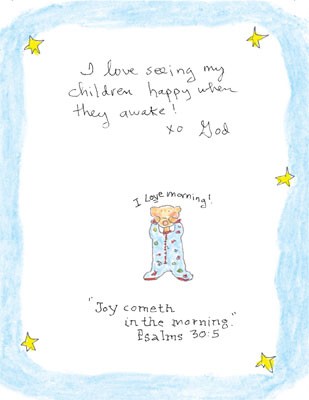 I love seeing my
children happy when
they awake!
xo God
I Love morning!
"Joy cometh
in the morning."
Psalms 30:5